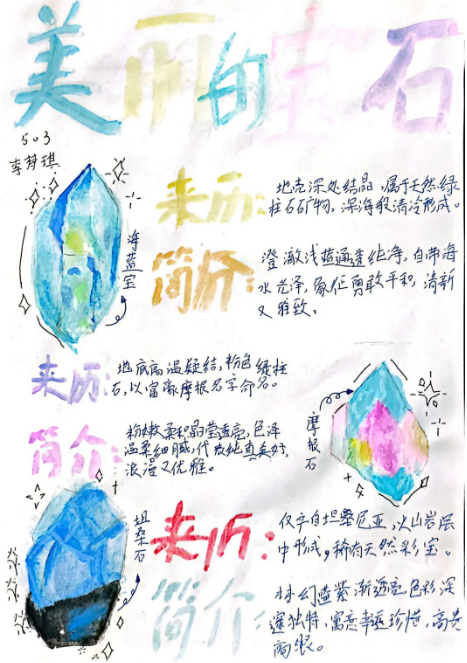 美丽的宝石
503
李梦琪
海蓝宝
来历：
地壳深处结晶，属于天然绿
柱石矿物，深海般清冷形成。
简介：
澄澈浅蓝通透纯净，自带海
水光泽，象征勇敢平和，清新
又雅致。
来历：
地底高温凝结，粉色绿柱
石，以富豪摩根名字命名。
简介：
粉嫩柔和晶莹透亮，色泽
温柔细腻，代表纯真美好，
浪漫又优雅。
摩根石
坦桑石
来历：
仅产自坦桑尼亚，火山岩层
中形成，稀有天然彩宝。
简介：
梦幻蓝紫渐透亮，色彩深
邃独特，寓意幸运珍惜，高贵